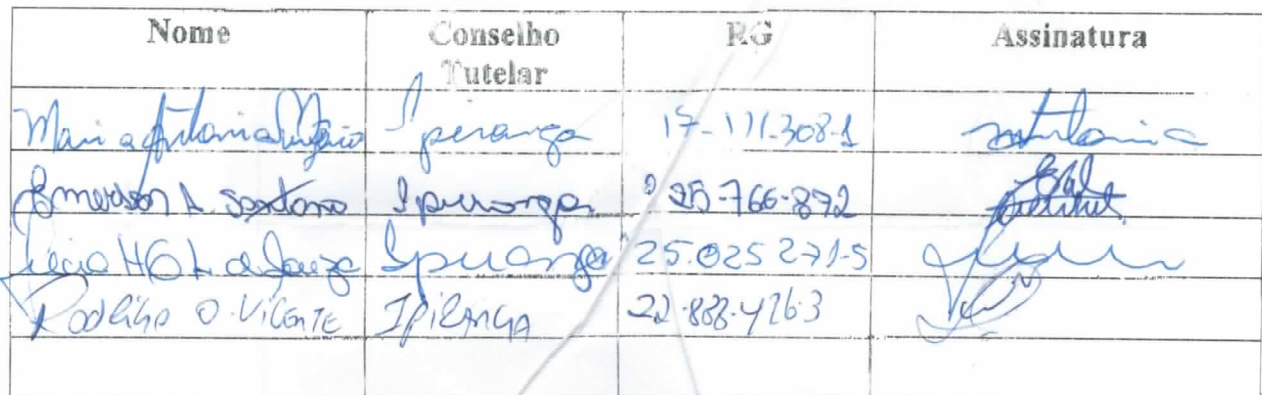 Nome Conselho Tutelar RG Assinatura
Maria Antonia Ipiranga 17-111.308-1 Antonia
Emerson A. Santana Ipiranga 25-766-872
de Souza Ipiranga 25.025 271-5
Rodrigo O. Vicente IPIRANGA 22-888-426-3